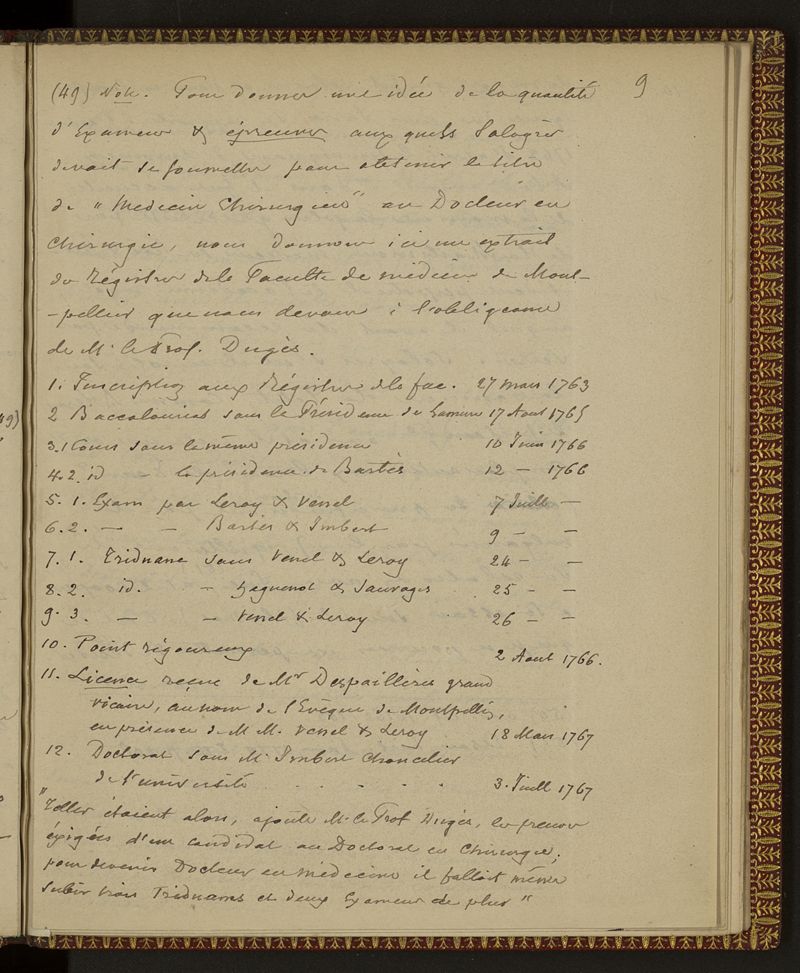 9
(49) Note. Pour donner une idée de la quantité
d'Examens & épreuves aux quels Salogiés
devait se soumettre pour obtenir le titre
de "Medecin Chirurgien" au Docteur en
Chirurgie, nous donnons ici un extrait
du Régistre dela Faculté de médecine de Mont-
-pellier que nous devons à l'obligeance
de Mr. le Prof. Dugès.
1. Inscription aux Régistres dela fac. 27 mars 1763
2 Baccalauréat sous la Présidence de Lamure 17 Aout 1765
3. 1 Cours sous la même présidence 10 Juin 1766
4. 2. id - la présidence de Bartès 12 — 1766
5. 1. Exam par Leroy & Venel 7 Juill —
6. 2. — — Bartès & Imbert 9 — —
7. 1. Triduane sous Venel & Leroy 24 — —
8. 2. id. — Haguenot & Sauvages 25 — —
9. 3. — — Venel & Leroy 26 — —
10. Point rigoureux 2 Aout 1766.
11. Licence recue de Mr Despaillères grand
vicaire, au nom de l'Eveque de Montpellier,
en présence de M M. Venel & Leroy 18 Mars 1767
12. Doctorat sous Mr Imbert Chancelier
de l'université . . . . . 3. Juill 1767
"Telles étaient alors, ajoute Mr. le Prof Dugès, les preuves
éxigées d'un candidat au Doctorat en Chirurgie;
pour devenir Docteur en médecine il fallait même
subir trois Triduanes et deux Examens de plus"
49)